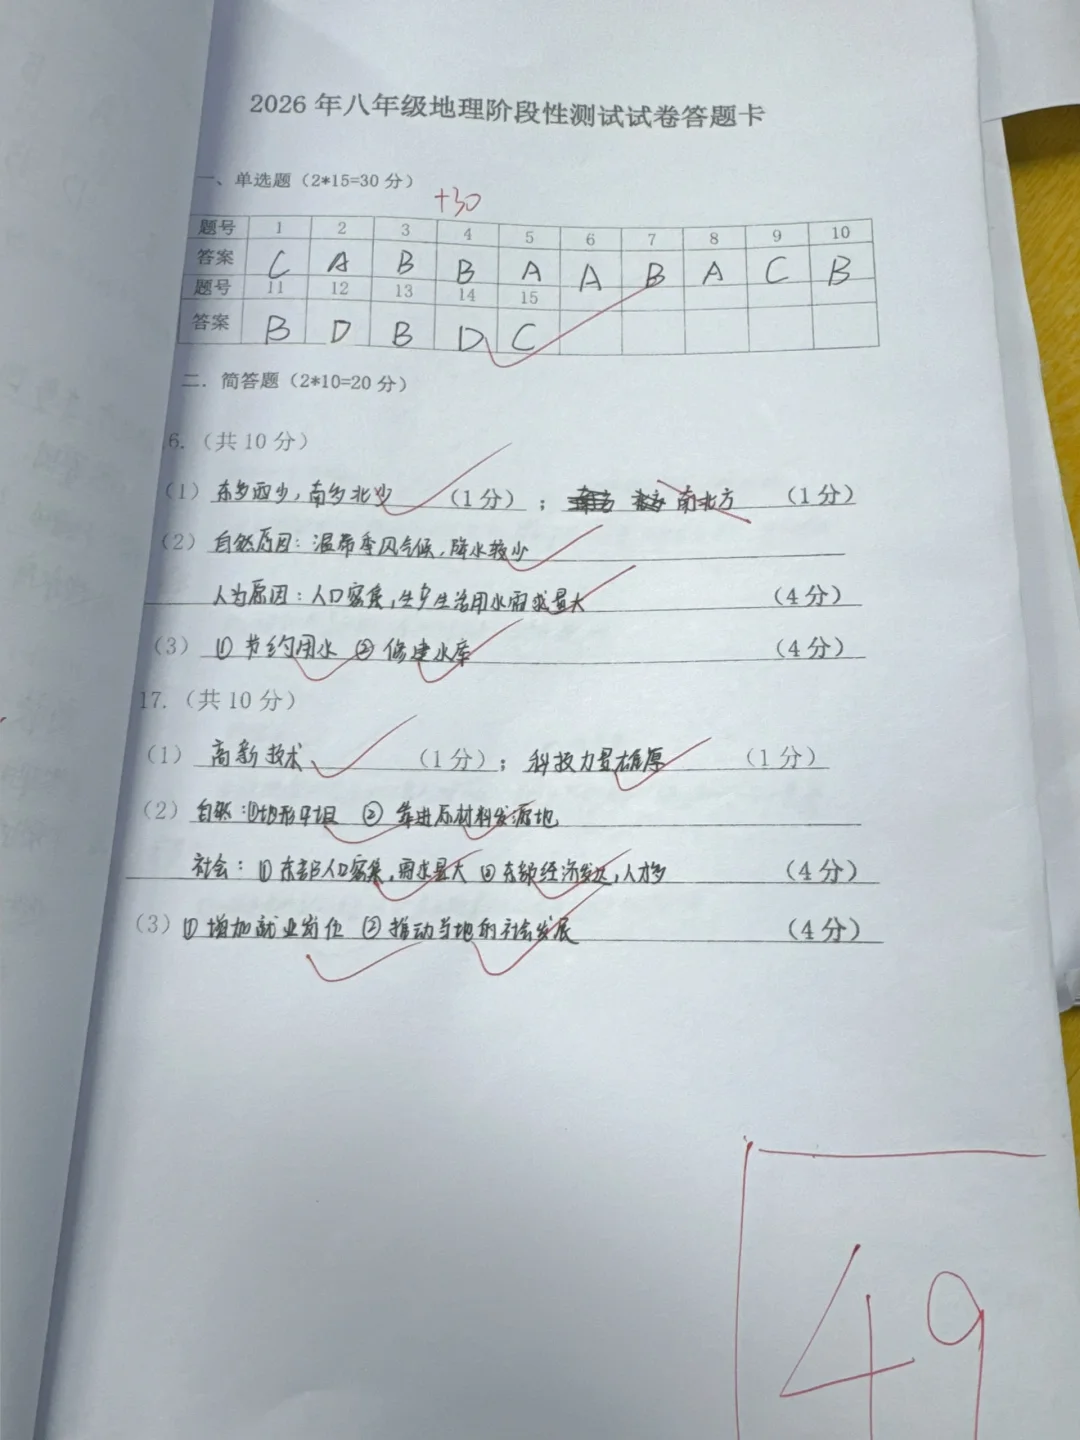 2026年八年级地理阶段性测试试卷答题卡
一、单选题（2*15=30分）
+30
题号 1 2 3 4 5 6 7 8 9 10
答案 C A B B A A B A C B
题号 11 12 13 14 15
答案 B D B D C
二．简答题（2*10=20分）
6.（共10分）
（1）东多西少，南多北少（1分）； 南北方（1分）
（2）自然原因：温带季风气候，降水较少
人为原因：人口密集，生产生活用水需求量大（4分）
（3）①节约用水 ②修建水库（4分）
17.（共10分）
（1）高新技术、（1分）；科技力量雄厚（1分）
（2）自然：①地形平坦 ②靠进原材料发源地
社会：①东部人口密集，需求量大 ②东部经济发达，人才多（4分）
（3）①增加就业岗位 ②推动当地的社会发展（4分）
49